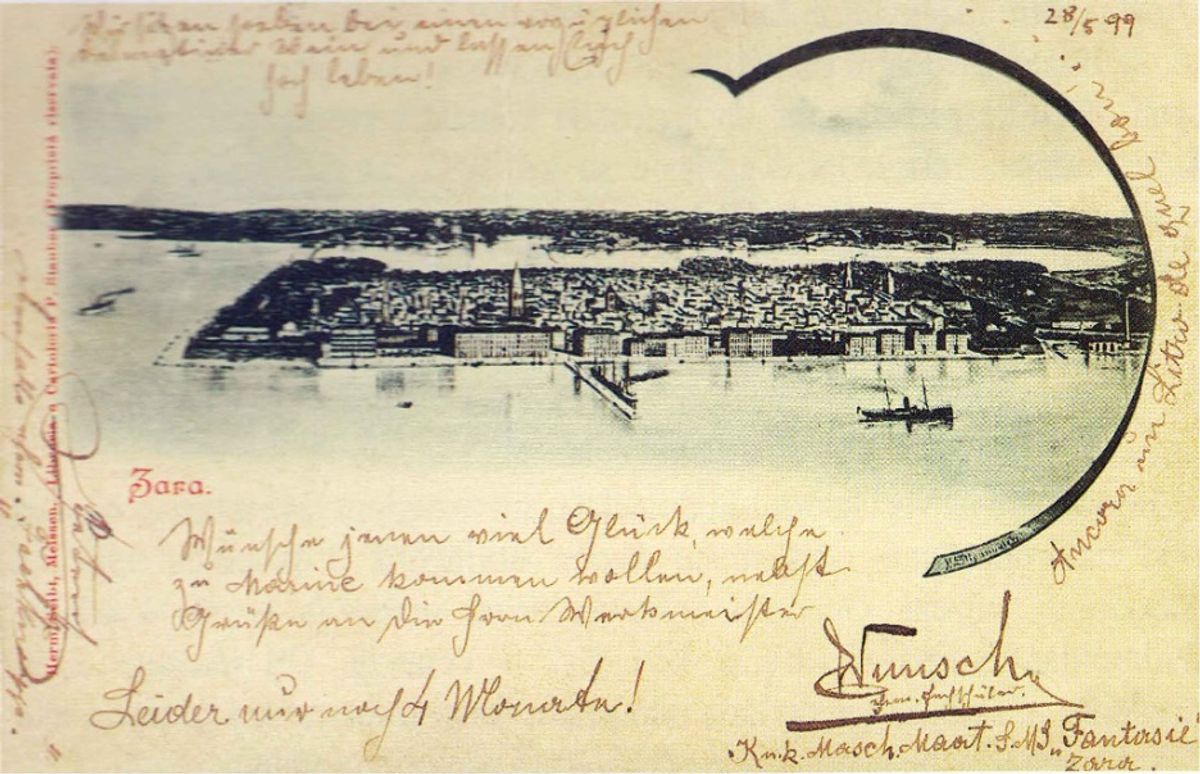 28/5 99
Wir sitzen soeben bei einem vorzüglichen
dalmatiner Wein und lassen Euch
hoch leben!
Ancora un Litro de quel bon!
Zara.
Wünsche jenen viel Glück, welche
zu Marine kommen wollen, nebst
Grüße an die Herrn Werkmeister
Wunsch
gew. Fachschüler.
Leider nur noch 4 Monate!
K.u.k. Masch. Maat. S.M.S. „Fantasie"
Zara.
Herm. Seibt, Meissen. Libreria e Cartoleria P. (Proprietà riservata)